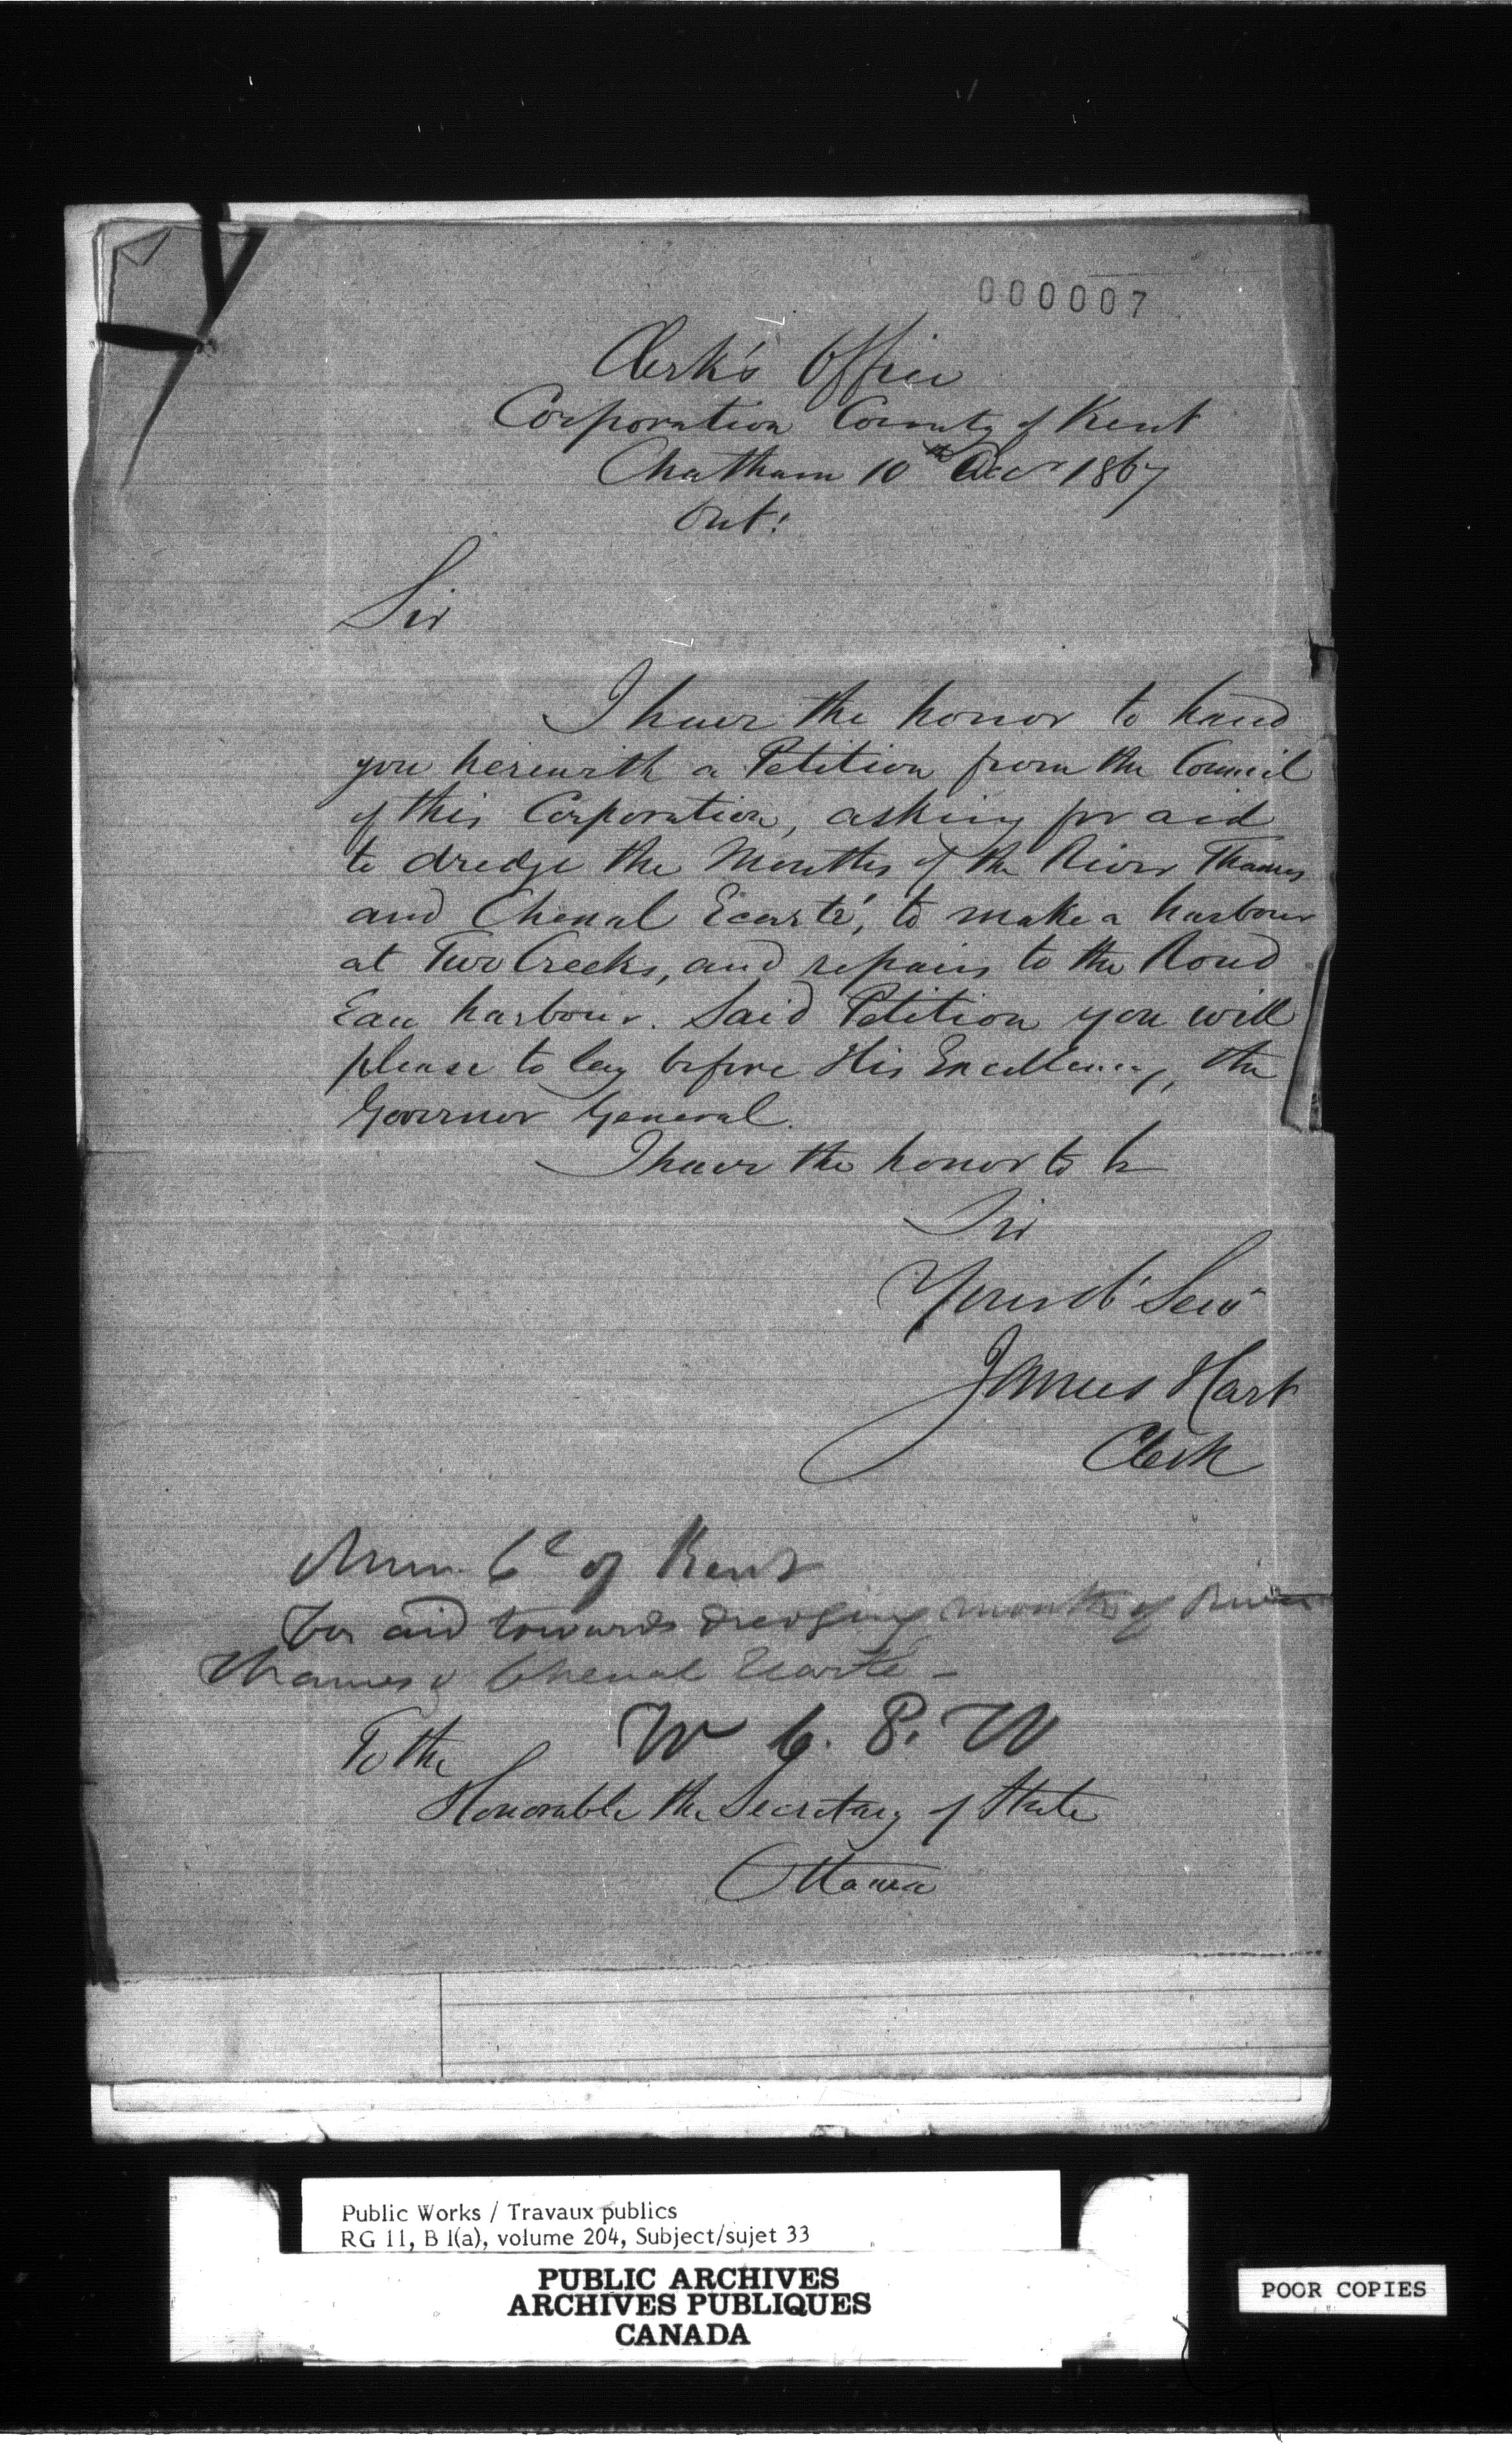 000007
Clerk's Office
Corporation County of Kent
Chatham 10th Decr 1867
Ont:
Sir
I have the honor to hand
you herewith a Petition from the Council
of this Corporation, asking for aid
to dredge the Mouths of the River Thames
and Chenal Ecarté, to make a harbour
at Two Creeks, and repairs to the Rond
Eau harbour. Said Petition you will
please to lay before His Excellency, the
Governor General.
I have the honor to be
Sir
Your obt Servt
James Hart
Clerk
Mun. Cl of Kent
For aid towards dredging mouths of River
Thames & Chenal Ecarté -
To the
W C. P. W
Honorable the Secretary of State
Ottawa
Public Works / Travaux publics
RG 11, B 1(a), volume 204, Subject/sujet 33
PUBLIC ARCHIVES
ARCHIVES PUBLIQUES
CANADA
POOR COPIES